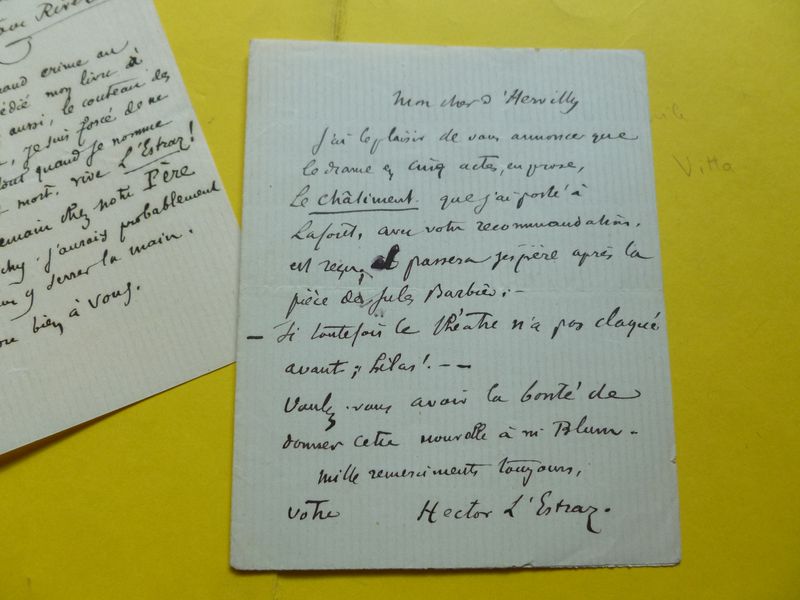 rand crime au
édié mon livre à
aussi, le couteau des
, je suis forcé de ne
tout quand je nomme
mort, vive L'Estraz!
emain chez notre Père
chy. j'aurais probablement
y serrer la main.
bien à vous.
Mon cher d'Hervilly
J'ai le plaisir de vous annoncer que
le drame en cinq actes, en prose,
Le Châtiment. que j'ai porté à
Laforêt, avec votre recommandation,
est reçu, et passera j'espère après la
pièce de Jules Barbier; -
- Si toutefois le théâtre n'a pas claqué
avant; hélas! - -
Voulez-vous avoir la bonté de
donner cette nouvelle à m Blum -
Mille remerciments toujours,
votre Hector L'Estraz.
Vitta